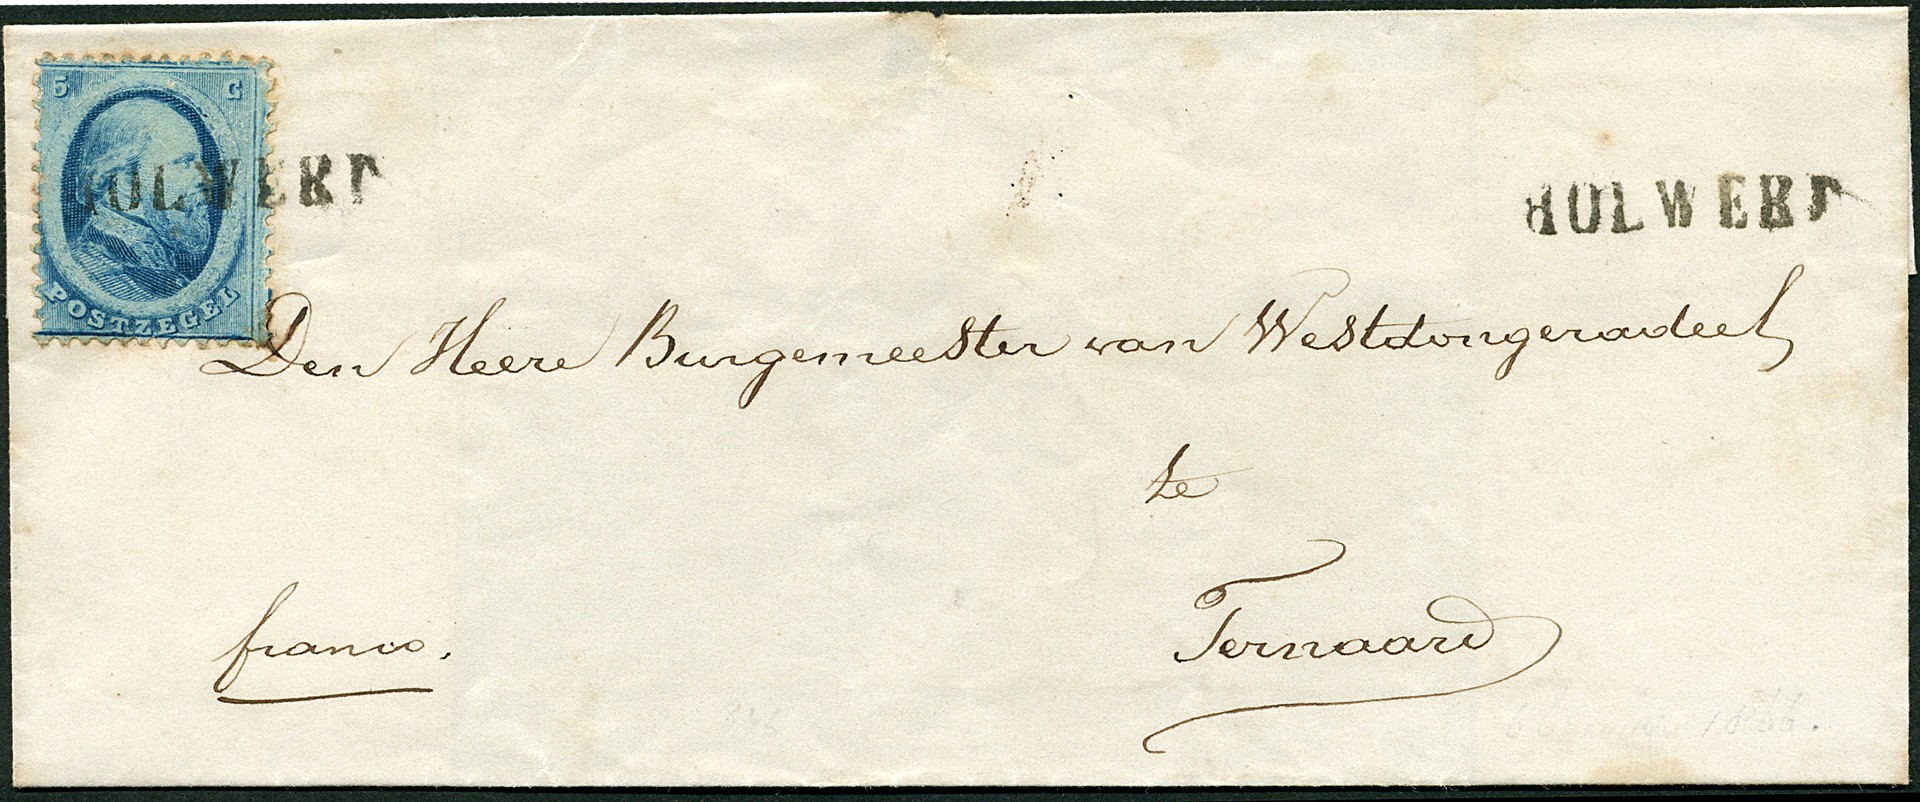 5 C
POSTZEGEL
HOLWERD
HOLWERD
Den Heere Burgemeester van Westdongeradeel
te
Ternaard
franco.
1866.